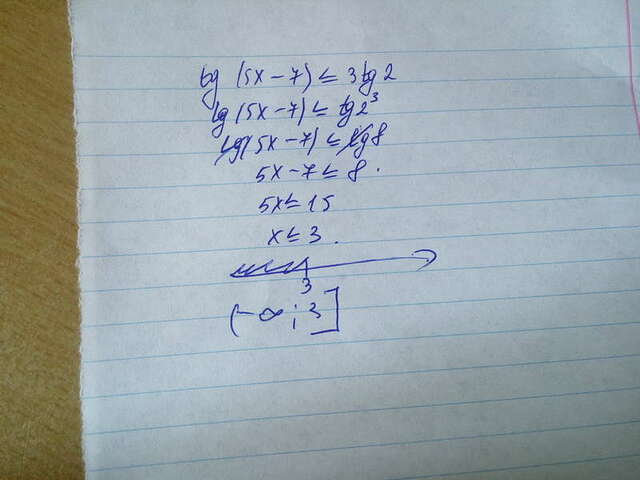 lg (5x − 7) ≤ 3lg2
lg (5x − 7) ≤ lg2³
lg(5x − 7) ≤ lg8
5x − 7 ≤ 8.
5x ≤ 15
x ≤ 3.
3
(−∞; 3]